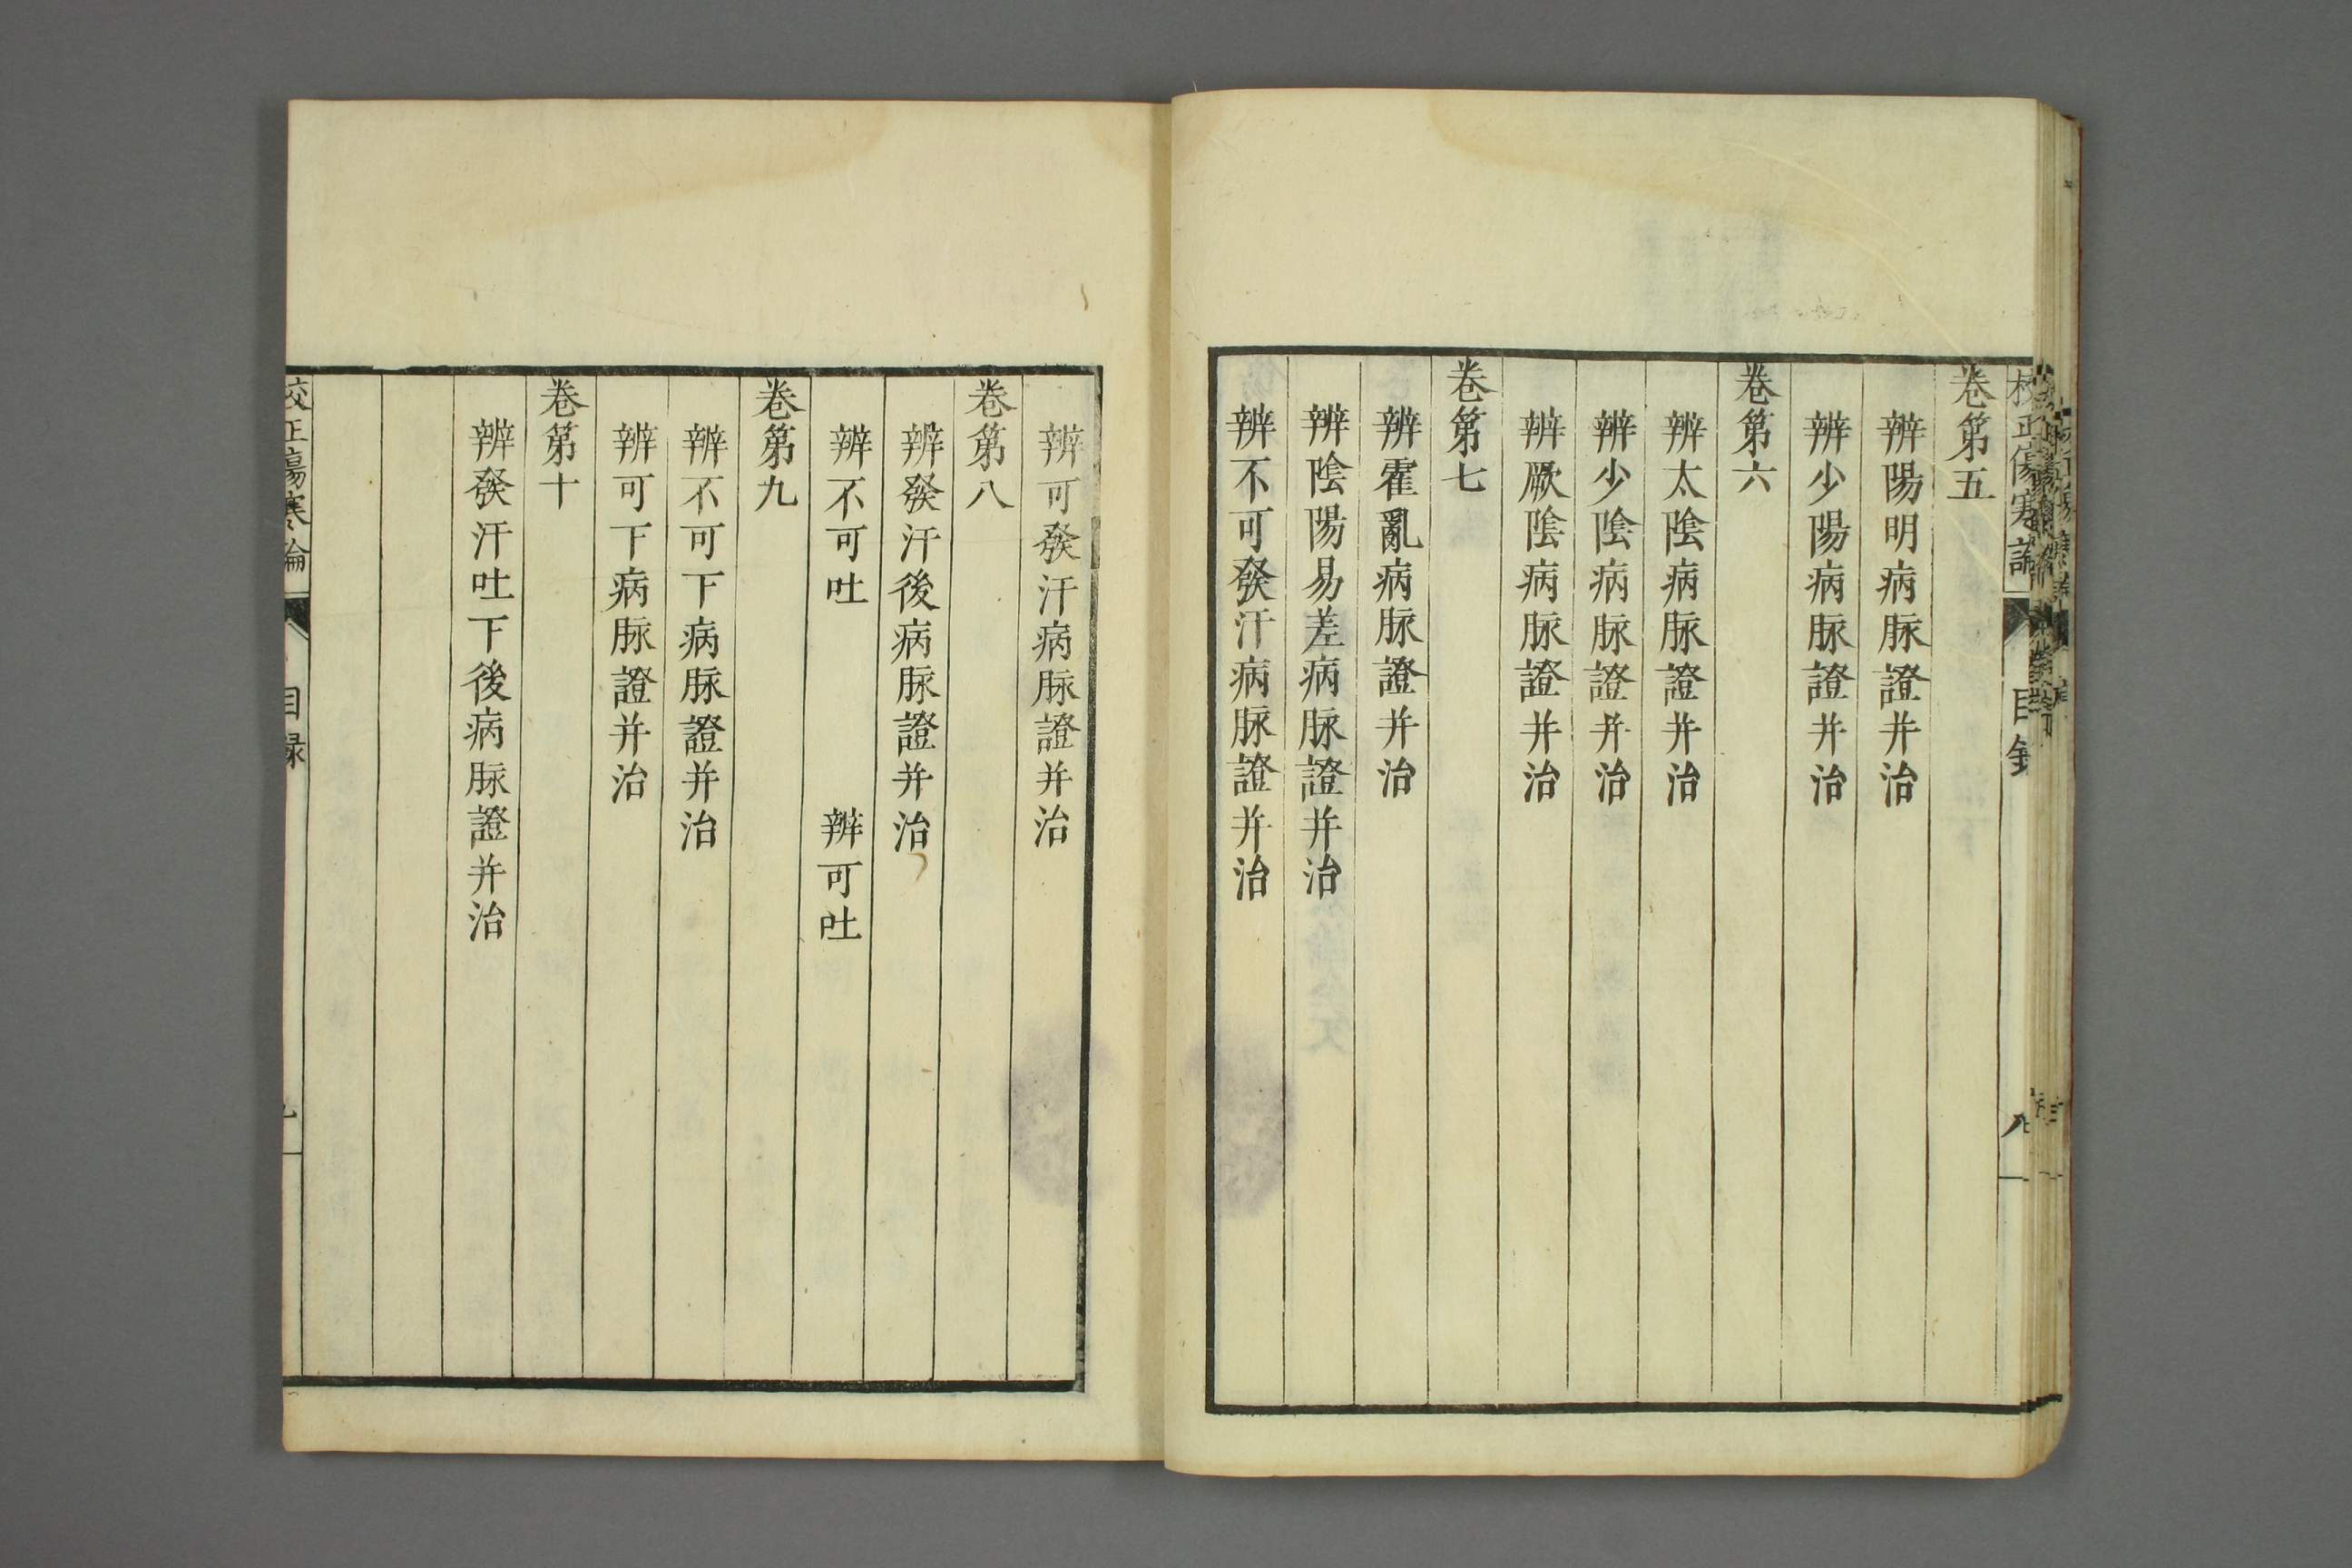 校正傷寒論 目錄 八
卷第五
辨陽明病脉證并治
辨少陽病脉證并治
卷第六
辨太陰病脉證并治
辨少陰病脉證并治
辨厥陰病脉證并治
卷第七
辨霍亂病脉證并治
辨陰陽易差病脉證并治
辨不可發汗病脉證并治
辨可發汗病脉證并治
卷第八
辨發汗後病脉證并治
辨不可吐 辨可吐
卷第九
辨不可下病脉證并治
辨可下病脉證并治
卷第十
辨發汗吐下後病脉證并治
校正傷寒論 目録